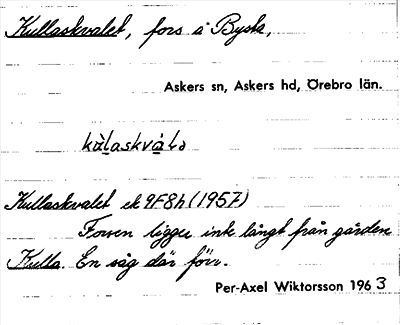 Kullaskvalet, fors i Bysta,
Askers sn, Askers hd, Örebro län.
kùlaskvàlə
Kullaskvalet ek 9F8h (1957)
Forsen ligger inte långt från gården
Kulla. En såg där förr.
Per-Axel Wiktorsson 1963